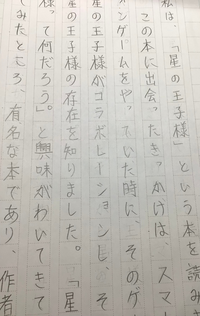 私は、「星の王子様」という本を読みま
この本に出会ったきっかけは、スマー
ンゲームをやっていた時に、そのゲ
星の王子様がコラボレーションし、そ
星の王子様の存在を知りました。「星
様って何だろう。」と興味がわいてきて
てみたところ、有名な本であり、作者